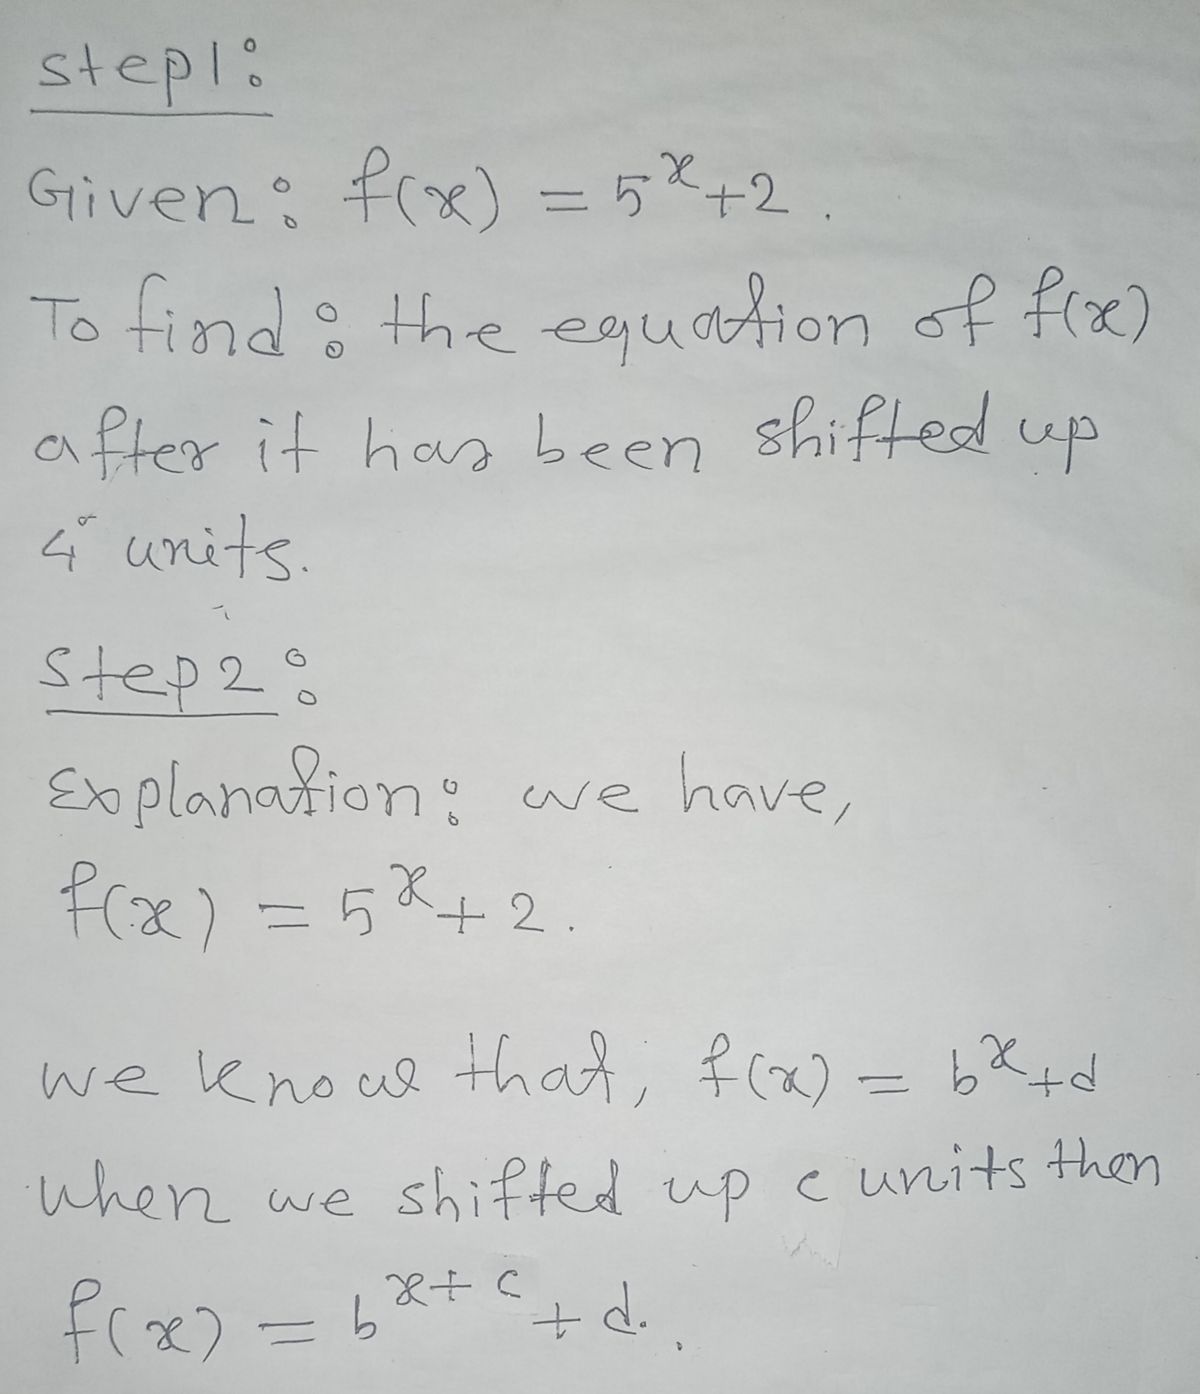 step1:
Given: f(x) = 5^x+2.
To find: the equation of f(x)
after it has been shifted up
4 units.
step2:
Explanation: we have,
f(x) = 5^x+2.
we know that, f(x) = b^x+d
when we shifted up c units then
f(x) = b^{x+c}+d.